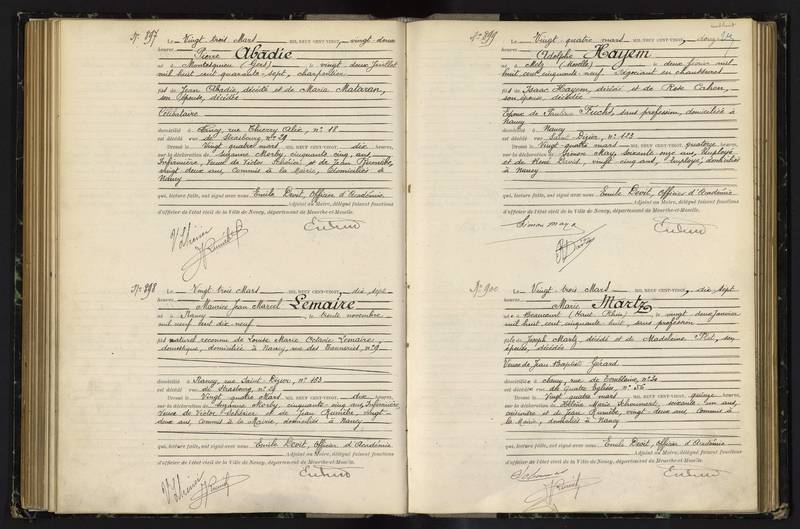 N° 897 Le Vingt trois Mars MIL NEUF CENT-VINGT, vingt-deux
heures
Pierre Abadie
né à Montesquieu (Gers) le vingt deux Juillet
mil huit cent quarante-sept, charpentier
fils de Jean Abadie, décédé et de Maria Mataran,
son épouse, décédée
Célibataire
domicilié à Nancy, rue Thierry Alix, n° 18
est décédé rue de Strasbourg n° 29
Dressé le Vingt quatre mars dix heures,
sur la déclaration de Suzanne Morby, cinquante cinq ans,
Infirmière, Veuve de Victor et de Jean
vingt deux ans, Commis à la Mairie, domiciliés à
Nancy
qui, lecture faite, ont signé avec nous Emile Devit, Officier d'Académie
Adjoint au Maire, délégué faisant fonctions
d'officier de l'état civil de la Ville de Nancy, département de Meurthe-et-Moselle.
N° 898 Le Vingt trois Mars MIL NEUF CENT-VINGT, dix sept
heures
Maurice Jean Marcel Lemaire
né à Nancy le trente novembre
mil neuf cent dix-neuf
fils naturel reconnu de Louise Marie Octavie Lemaire,
domestique, domiciliée à Nancy, rue des Tanneries, n° 9
domicilié à Nancy, rue Saint Dizier, n° 153
est décédé rue de Strasbourg, n°
Dressé le Vingt quatre Mars dix heures,
sur la déclaration de Suzanne Morby, cinquante-cinq ans, Infirmière,
Veuve de Victor et de Jean vingt-
deux ans, Commis à la Mairie, domiciliés à Nancy
qui, lecture faite, ont signé avec nous Emile Devit, Officier d'Académie
Adjoint au Maire, délégué faisant fonctions
d'officier de l'état civil de la Ville de Nancy, département de Meurthe-et-Moselle.
N° 899 Le Vingt-quatre mars MIL NEUF CENT-VINGT, douze
heures
Adolphe Hayem
né à Metz (Moselle) le deux février mil
huit cent cinquante neuf Négociant en chaussures
fils de Isaac Hayem, décédé et de Rose Cahen,
son épouse, décédée
Epoux de Pauline Fuchs, sans profession, domiciliée à
Nancy
domicilié à Nancy
est décédé rue Saint Dizier, n° 123
Dressé le Vingt-quatre mars quatorze heures,
sur la déclaration de Simon May, soixante onze ans, Employé
et de René David, vingt cinq ans, Employé, domiciliés
à Nancy
qui, lecture faite, ont signé avec nous Emile Devit, Officier d'Académie
Adjoint au Maire, délégué faisant fonctions
d'officier de l'état civil de la Ville de Nancy, département de Meurthe-et-Moselle.
Simon May
N° 900 Le Vingt-trois Mars MIL NEUF CENT-VINGT, dix sept
heures
Marie Martz
née à Beaucourt (Haut Rhin) le vingt deux Janvier
mil huit cent cinquante huit, sans profession
fille de Joseph Martz, décédé et de Madeleine son
épouse, décédée
Veuve de Jean Baptiste Gérard
domiciliée à Nancy, rue de
est décédée rue des Quatre Eglises, n° 56
Dressé le Vingt quatre mars quinze heures,
sur la déclaration de Hélène Marie soixante un ans,
et de Jean vingt deux ans Commis à
la Mairie, domiciliés à Nancy
qui, lecture faite, ont signé avec nous Emile Devit, Officier d'Académie
Adjoint au Maire, délégué faisant fonctions
d'officier de l'état civil de la Ville de Nancy, département de Meurthe-et-Moselle.